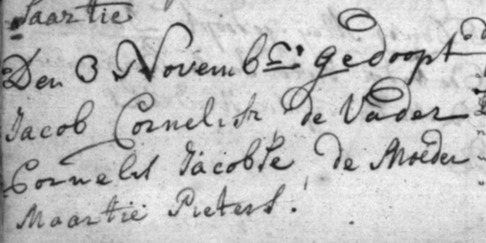 Saartie
Den 3 Novemb. gedoopt
Jacob Cornelisz, de Vader
Cornelis Jacobse de Moeder
Maartie Pieters.